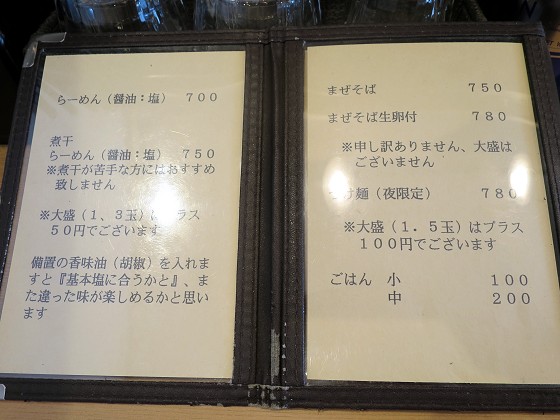 らーめん（醤油：塩）　７００
煮干
らーめん（醤油：塩）　７５０
※煮干が苦手な方にはおすすめ
致しません
※大盛（１、３玉）はプラス
５０円でございます
備置の香味油（胡椒）を入れま
すと『基本塩に合うかと』、ま
た違った味が楽しめるかと思い
ます
まぜそば　７５０
まぜそば生卵付　７８０
※申し訳ありません、大盛は
ございません
つけ麺（夜限定）　７８０
※大盛（１．５玉）はプラス
１００円でございます
ごはん　小　１００
中　２００